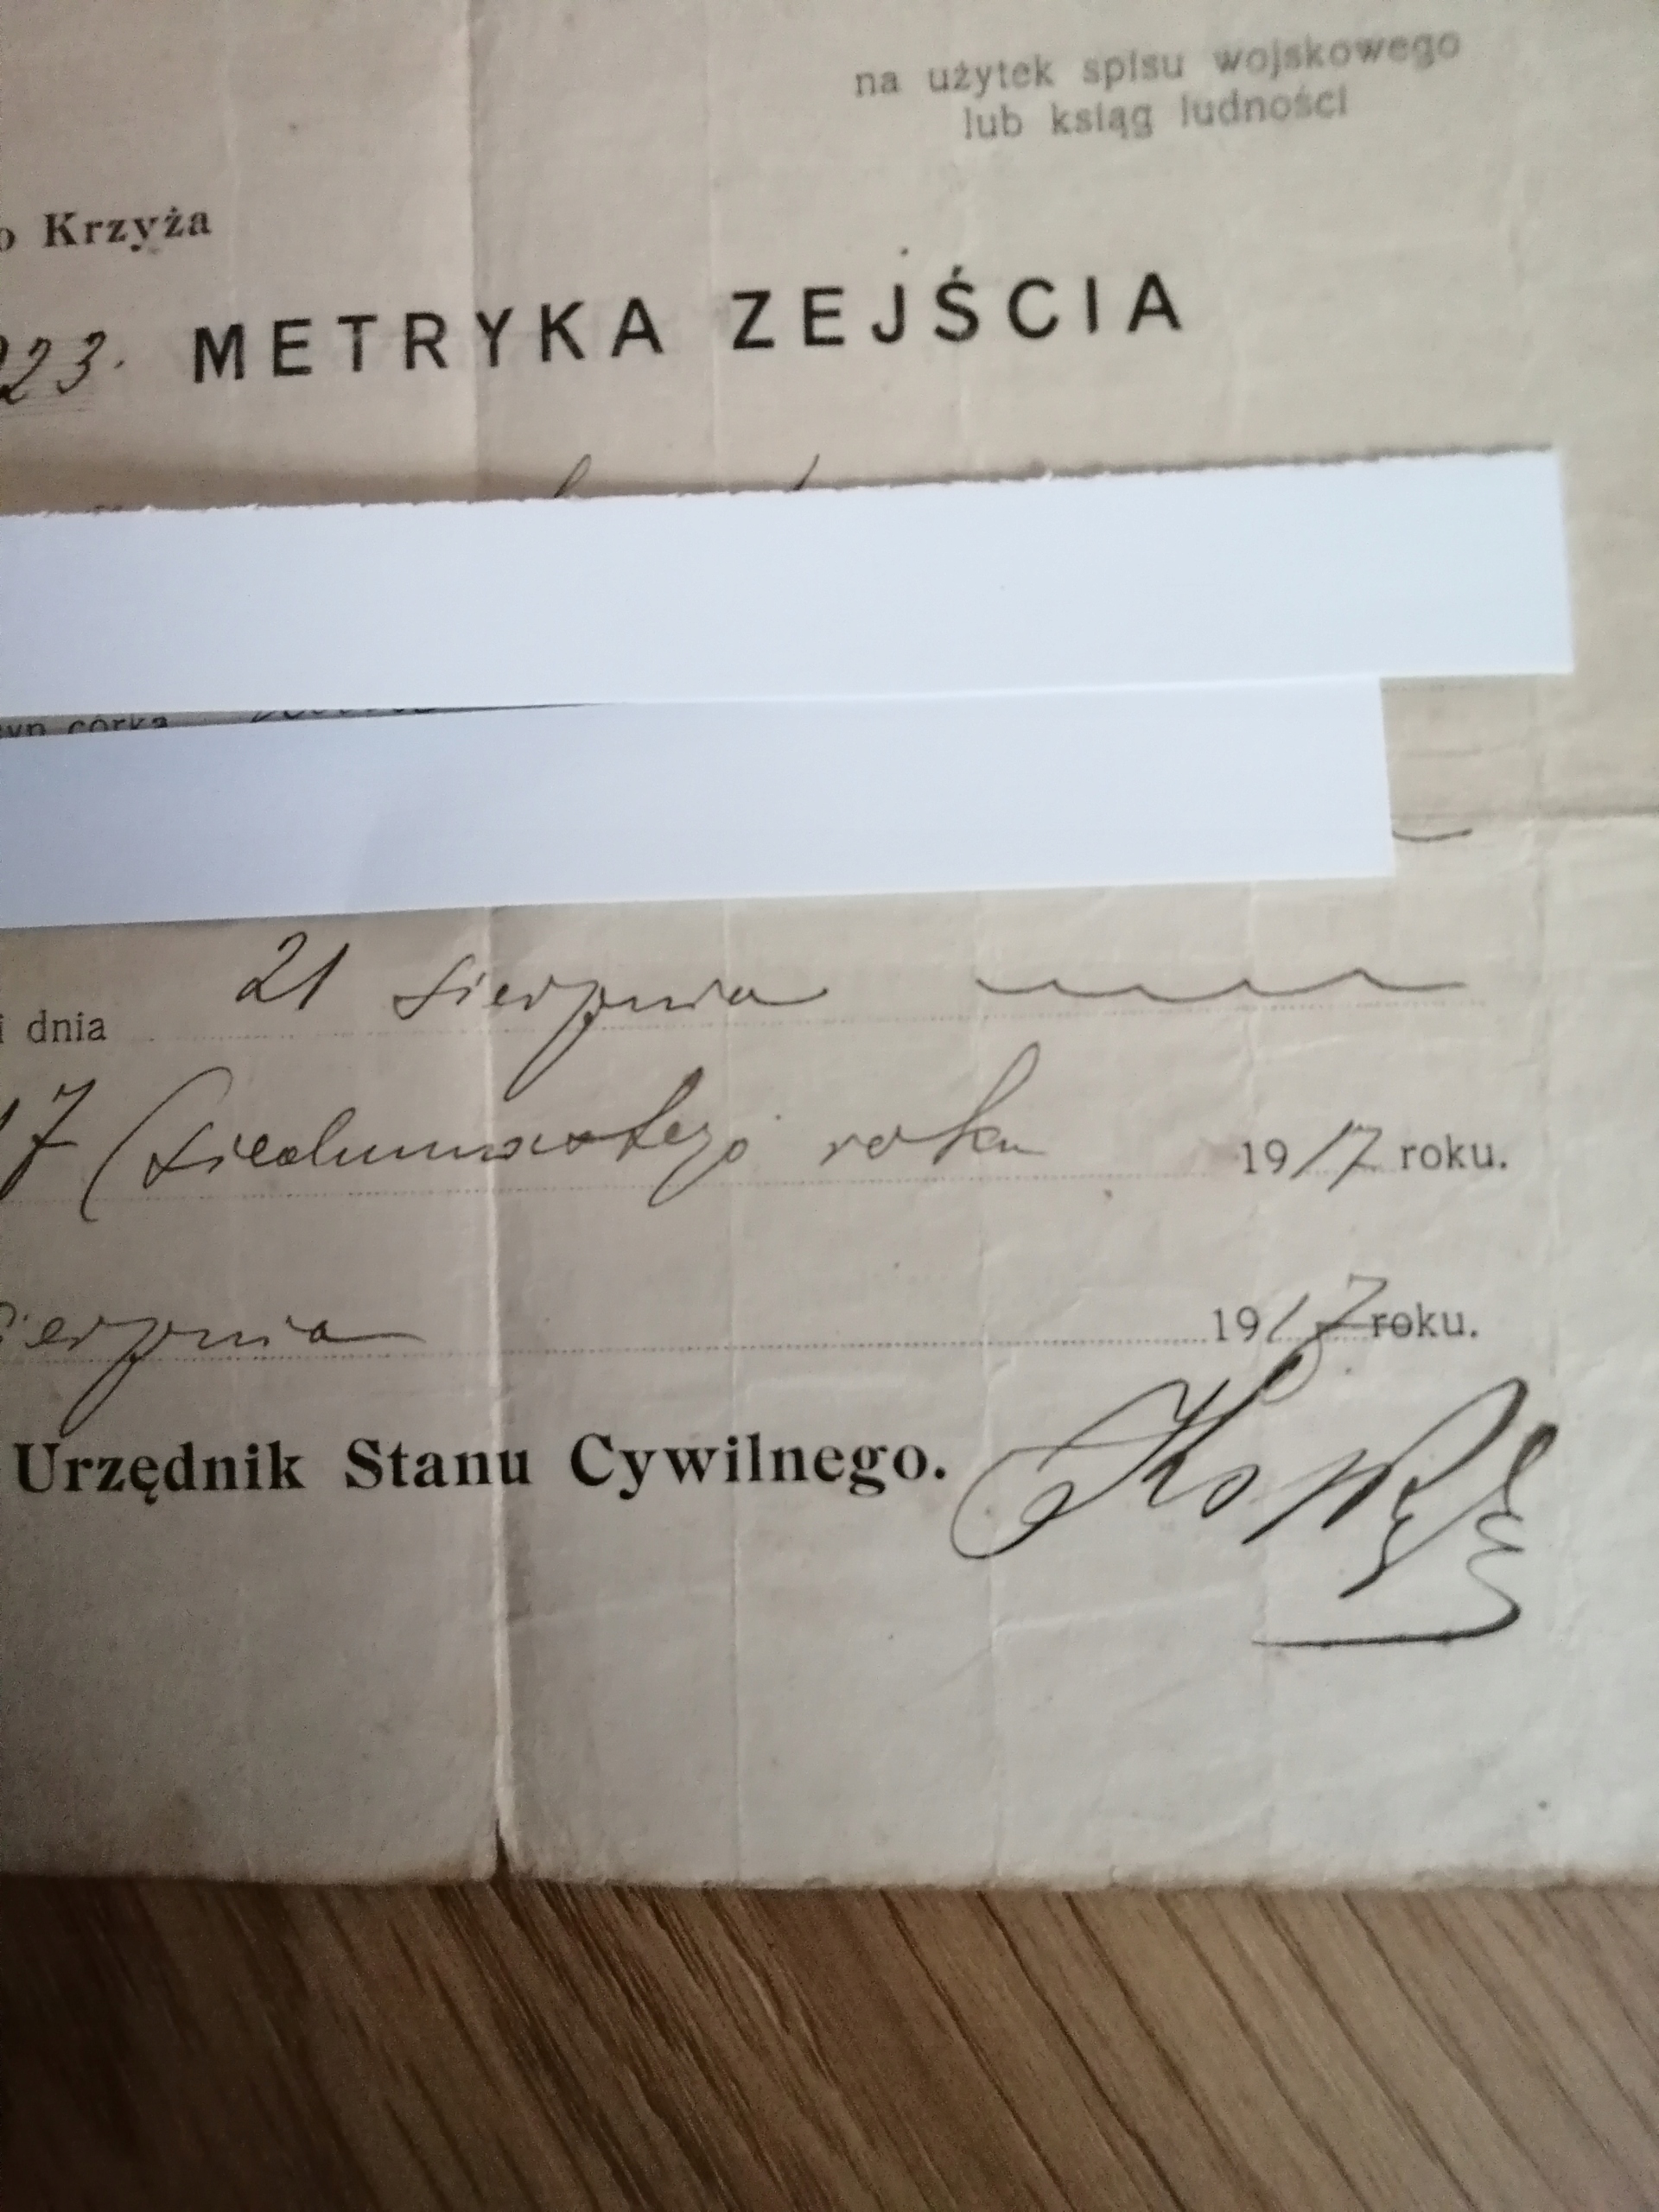 na użytek spisu wojskowego
lub ksiąg ludności
o Krzyża
923. METRYKA ZEJŚCIA
syn córka
i dnia 21 sierpnia
17 (siedumnastego roku 1917 roku.
sierpnia 1917 roku.
Urzędnik Stanu Cywilnego.